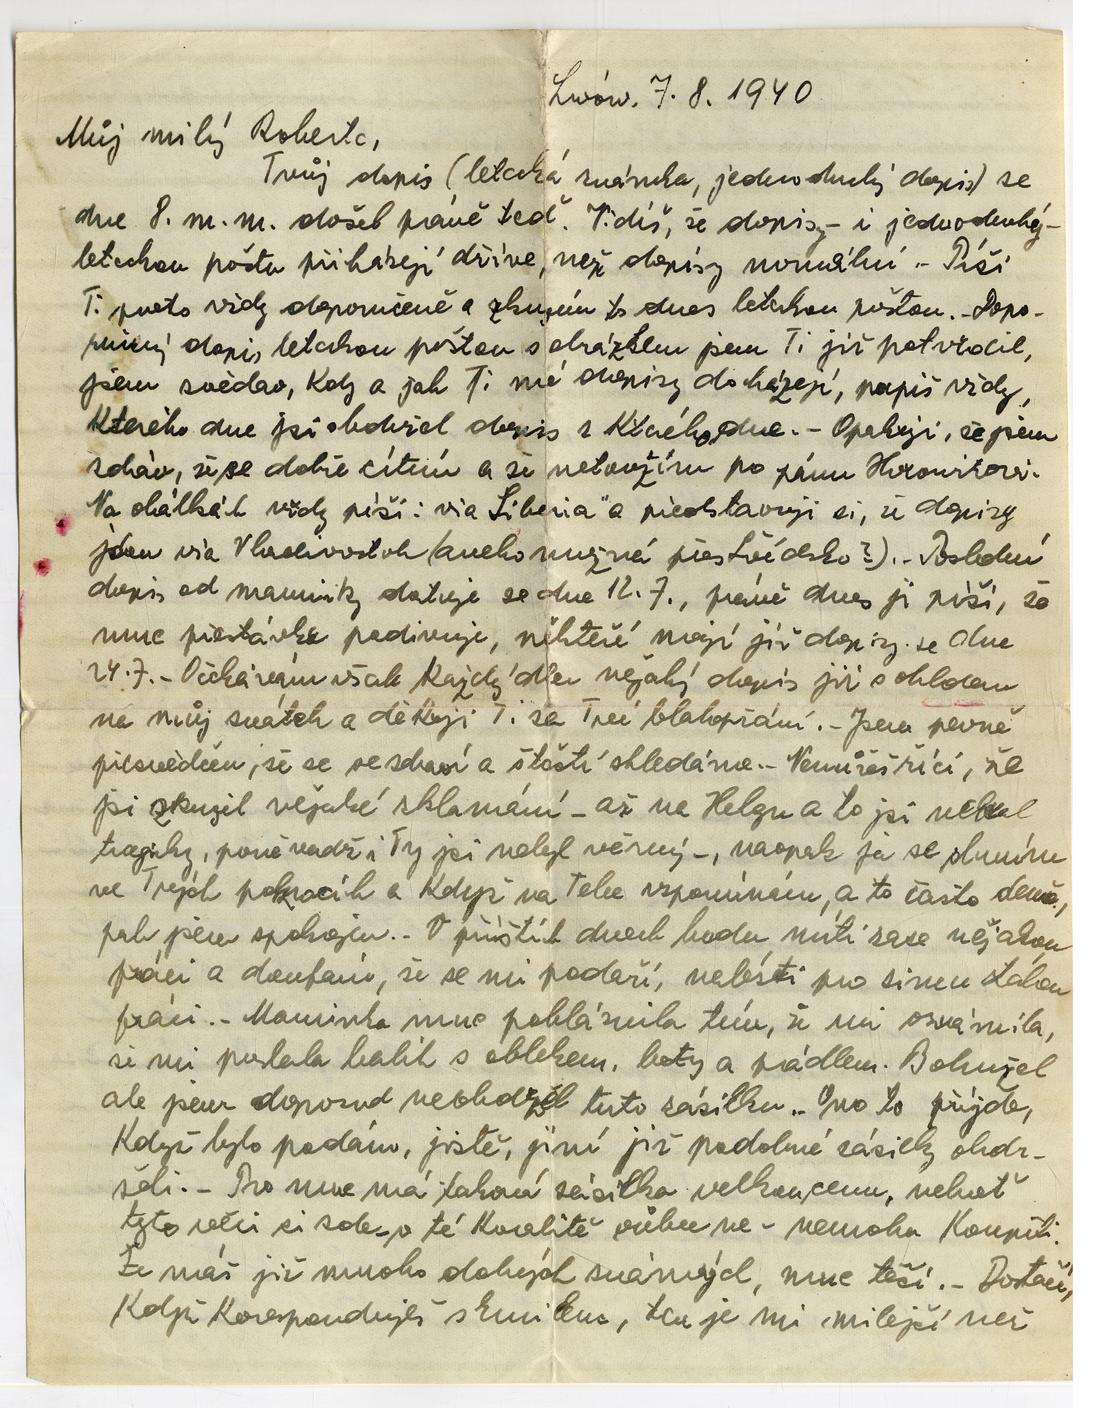 Lwów. 7. 8. 1940
Můj milý Roberte,
Tvůj dopis (letecká známka, jednoduchý dopis) se
dne 8. m. m. došel právě teď. Vidíš, že dopisy – i jednoduché –
leteckou poštu přicházejí dříve, než dopisy normální .- Píši
Ti proto vždy doporučeně a zkusím to dnes leteckou poštou. - Dopo-
ručený dopis leteckou poštou s obrázkem jsem Ti již potvrdil,
jsem zvědav, kdy a jak Ti mé dopisy docházejí, napiš vždy,
kterého dne jsi obdržel dopis z kterého dne. - Opakuji, že jsem
zdráv, že se dobře cítím a že netoužím po pánu
Na obálkách vždy píši: via Siberia" a představuji si, že dopisy
jdou via Vladivostok (aneb možná přes Švédsko?). - Poslední
dopis od maminky datuje se dne 12. 7., právě dnes jí píši, že
mne přestávka podivuje, někteří mají již dopisy ze dne
24. 7. - Očekávám však každý den nějaký dopis již s ohledem
na můj svátek a děkuji Ti za Tvé blahopřání. - Jsem pevně
přesvědčen, že se ve zdraví a štěstí shledáme. - Nemůžeš říci, že
jsi zkusil nějaké zklamání – až na Helgu a to jsi nebral
tragicky, poněvadž i Ty jsi nebyl věrný –, naopak já se sluním
ve Tvých pokrocích a když na Tebe vzpomínám, a to často denně,
pak jsem spokojen. - V příštích dnech budu míti zase nějakou
práci a doufám, že se mi podaří, nalézti pro zimu stálou
práci. - Maminka mne pobláznila tím, že mi oznámila,
že mi poslala balík s oblekem, boty a prádlem. Bohužel
ale jsem doposud neobdržel tuto zásilku. - Ono to příjde,
když bylo podáno, jistě, jiní již podobné zásilky obdr-
želi. - Pro mne má taková zásilka velkou cenu, neboť
tyto věci si zde o té kvalitě vůbec ne - nemohu koupiti.
Že máš již mnoho dobrých známých, mne těší. - Dostačí,
když koresponduješ s Emilem, ten je mi milejší než